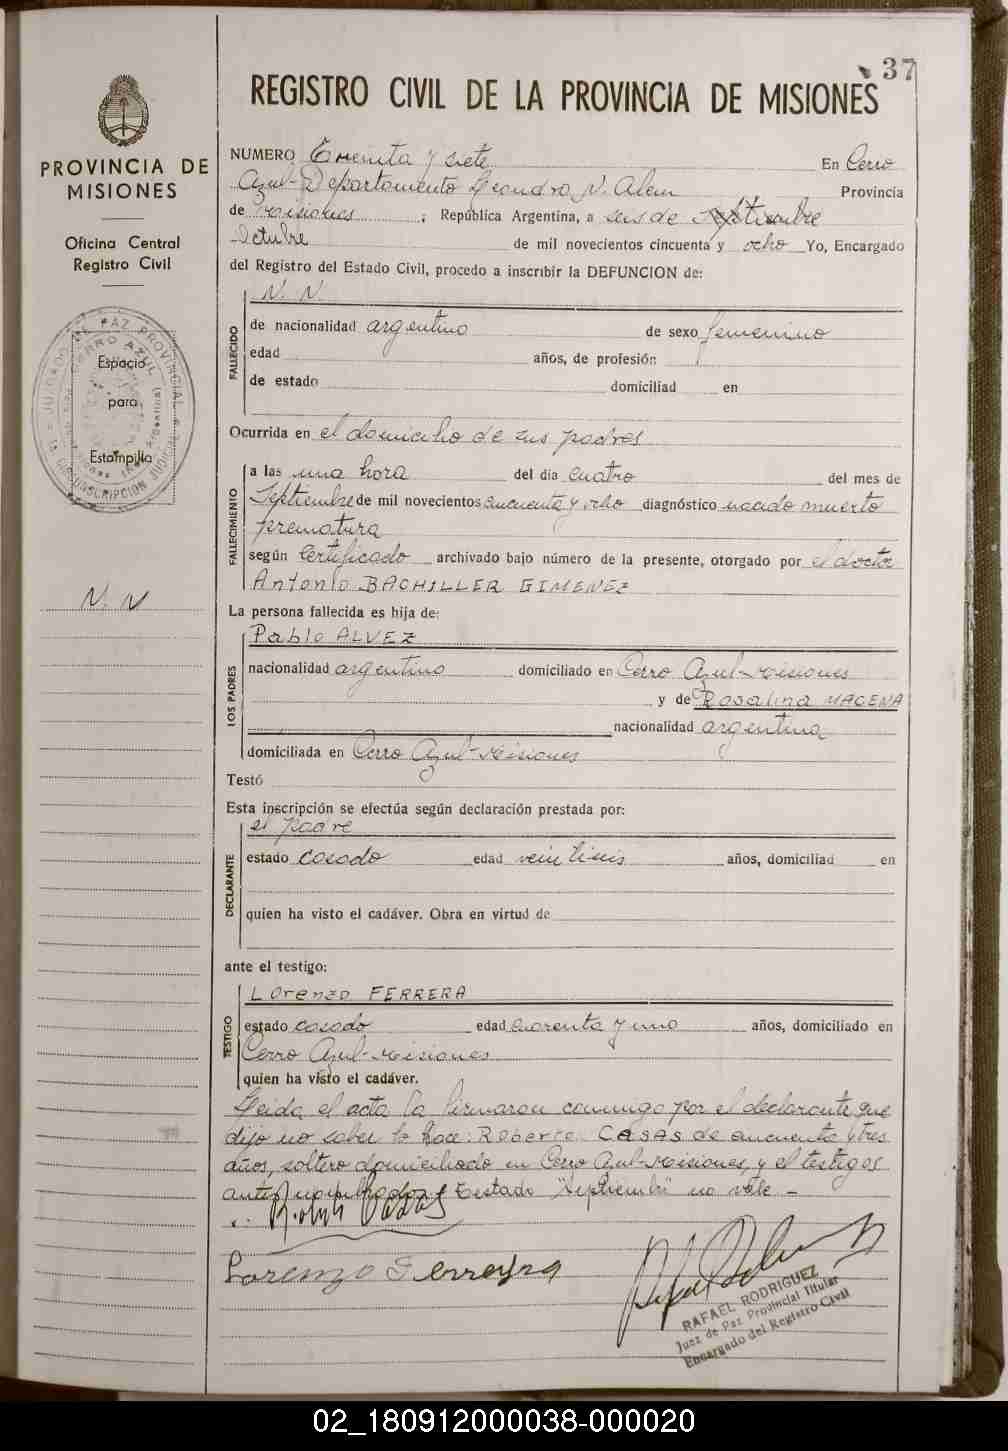 37
REGISTRO CIVIL DE LA PROVINCIA DE MISIONES
PROVINCIA DE
MISIONES
Oficina Central
Registro Civil
JUZGADO DE PAZ PROVINCIAL
CERRO AZUL
CIRCUNSCRIPCION JUDICIAL
Espacio
para
Estampilla
N. N
NUMERO Treinta y siete En Cerro
Azul-Departamento Leandro N. Alem Provincia
de Misiones ; República Argentina, a seis de Septiembre
Octubre de mil novecientos cincuenta y ocho Yo, Encargado
del Registro del Estado Civil, procedo a inscribir la DEFUNCION de:
FALLECIDO
N. N.
de nacionalidad argentino de sexo femenino
edad años, de profesión
de estado domiciliad en
Ocurrida en el domicilio de sus padres
FALLECIMIENTO
a las una hora del día cuatro del mes de
Septiembre de mil novecientos cincuenta y ocho diagnóstico nacido muerto
prematura
según Certificado archivado bajo número de la presente, otorgado por el doctor
Antonio BACHILLER GIMENEZ
La persona fallecida es hija de:
LOS PADRES
Pablo ALVEZ
nacionalidad argentino domiciliado en Cerro Azul-Misiones
y de Rosalina MACENA
nacionalidad argentina
domiciliada en Cerro Azul-Misiones
Testó
Esta inscripción se efectúa según declaración prestada por:
DECLARANTE
el padre
estado casado edad años, domiciliad en
quien ha visto el cadáver. Obra en virtud de
ante el testigo:
TESTIGO
Lorenzo FERRERA
estado casado edad cuarenta y uno años, domiciliado en
Cerro Azul-Misiones
quien ha visto el cadáver.
Leida el acta la firmaron conmigo por el declarante que
dijo no saber lo hace: Roberto CASAS de cincuenta y tres
años, soltero domiciliado en Cerro Azul-Misiones, y el testigos
antes Testado "Septiembre" no vale -
Lorenzo Ferreyra
RAFAEL RODRIGUEZ
Juez de Paz Provincial Titular
Encargado del Registro Civil
02_180912000038-000020